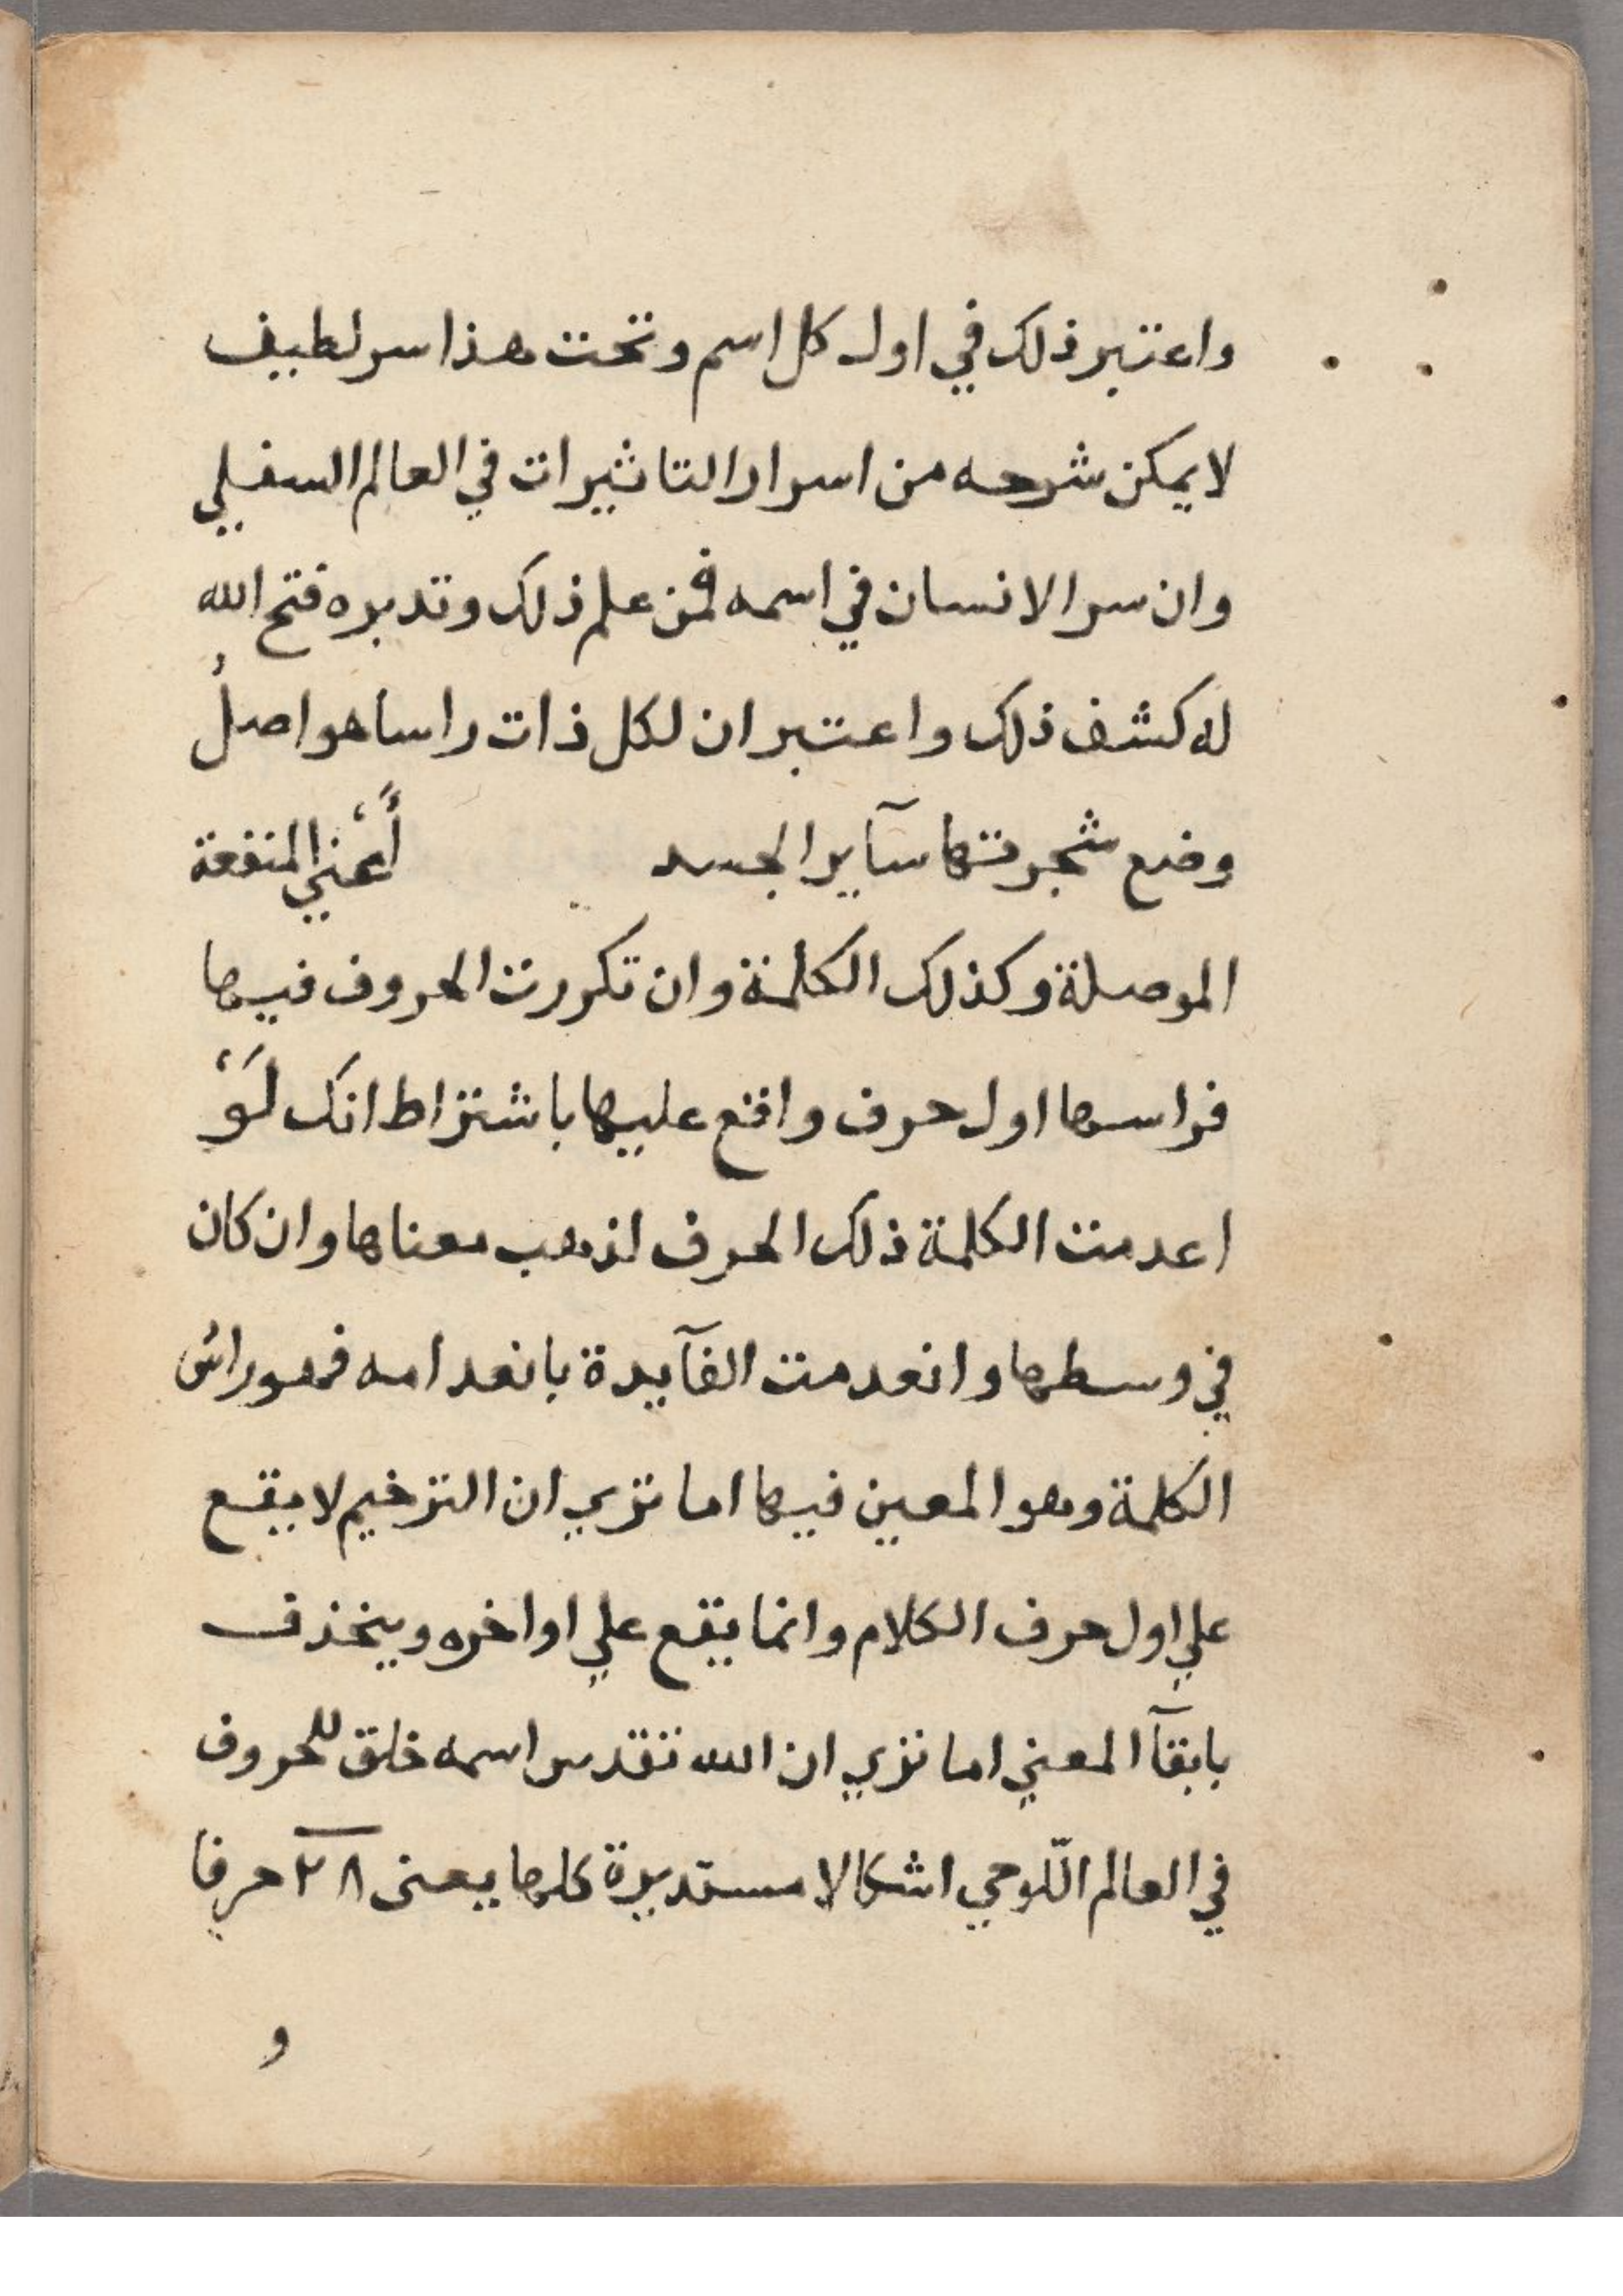 واعتبر ذلك في اول كل اسم وتحت هذا سر لطيف
لا يمكن شرحه من اسرار التاثيرات في العالم السفلي
وان سر الانسان في اسمه فمن علم ذلك وتدبره فتح الله
له كشف ذلك واعتبر ان لكل ذات راسا هو اصلُ
وضع شجرتها سآير الجسد أَعْني المنفعة
الموصلة وكذلك الكلمة وان تكررت الحروف فيها
فراسها اول حرف واقع عليها باشتراط انك لَوْ
اعدمت الكلمة ذلك الحرف لذهب معناها وان كان
في وسطها وانعدمت الفآيدة بانعدامه فهو راسُ
الكلمة وهو المعين فيها اما تري ان الترخيم لا يقع
علي اول حرف الكلام وانما يقع علي اواخره وينحذف
بابقآ المعني اما تري ان الله تقدس اسمه خلق للحروف
في العالم اللّوحي اشكالا مستديرة كلها يعنى ٢٨ حرفا
و